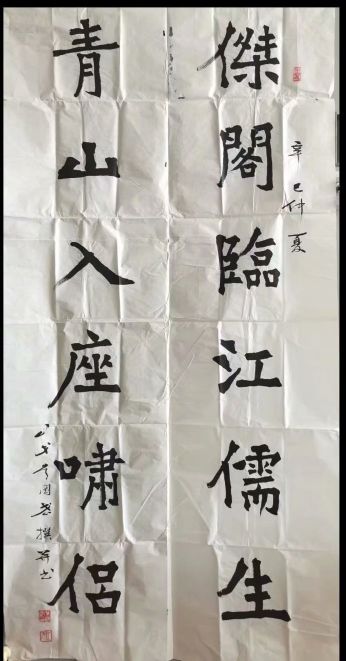 辛巳仲夏
傑閣臨江儒生
青山入座嘯侶
撰并书